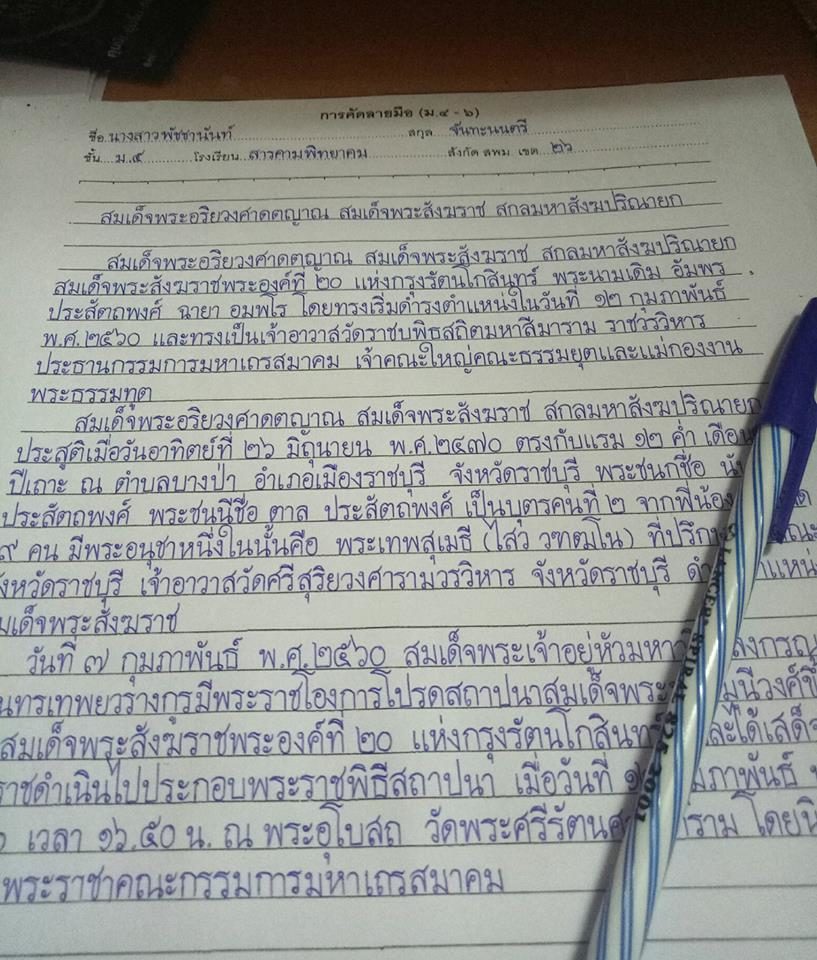 การคัดลายมือ (ม.๔ - ๖)
ชื่อ นางสาวพัชชานันท์ สกุล จันทะนนตรี
ชั้น ม.๕ โรงเรียน สารคามพิทยาคม สังกัด สพม. เขต ๒๖
สมเด็จพระอริยวงศาคตญาณ สมเด็จพระสังฆราช สกลมหาสังฆปริณายก
สมเด็จพระอริยวงศาคตญาณ สมเด็จพระสังฆราช สกลมหาสังฆปริณายก
สมเด็จพระสังฆราชพระองค์ที่ ๒๐ แห่งกรุงรัตนโกสินทร์ พระนามเดิม อัมพร
ประสัตถพงศ์ ฉายา อมพโร โดยทรงเริ่มดำรงตำแหน่งในวันที่ ๑๒ กุมภาพันธ์
พ.ศ.๒๕๖๐ และทรงเป็นเจ้าอาวาสวัดราชบพิธสถิตมหาสีมาราม ราชวรวิหาร
ประธานกรรมการมหาเถรสมาคม เจ้าคณะใหญ่คณะธรรมยุตและแม่กองงาน
พระธรรมทูต
สมเด็จพระอริยวงศาคตญาณ สมเด็จพระสังฆราช สกลมหาสังฆปริณายก
ประสูติเมื่อวันอาทิตย์ที่ ๒๖ มิถุนายน พ.ศ.๒๔๗๐ ตรงกับแรม ๑๒ ค่ำ เดือน
ปีเถาะ ณ ตำบลบางป่า อำเภอเมืองราชบุรี จังหวัดราชบุรี พระชนกชื่อ
ประสัตถพงศ์ พระชนนีชื่อ ตาล ประสัตถพงศ์ เป็นบุตรคนที่ ๒ จากพี่น้อง
๙ คน มีพระอนุชาหนึ่งในนั้นคือ พระเทพสุเมธี (ไสว วฑฒโน) ที่ปรึกษา
ังหวัดราชบุรี เจ้าอาวาสวัดศรีสุริยวงศารามวรวิหาร จังหวัดราชบุรี
มเด็จพระสังฆราช
วันที่ ๗ กุมภาพันธ์ พ.ศ.๒๕๖๐ สมเด็จพระเจ้าอยู่หัวมหา
นทรเทพยวรางกูรมีพระราชโองการโปรดสถาปนาสมเด็จพระ มุนีวงศ์
สมเด็จพระสังฆราชพระองค์ที่ ๒๐ แห่งกรุงรัตนโกสินทร์ และได้เสด็จ
ราชดำเนินไปประกอบพระราชพิธีสถาปนา เมื่อวันที่
เวลา ๑๖.๕๐ น. ณ พระอุโบสถ วัดพระศรีรัตน โดย
พระราชาคณะกรรมการมหาเถรสมาคม